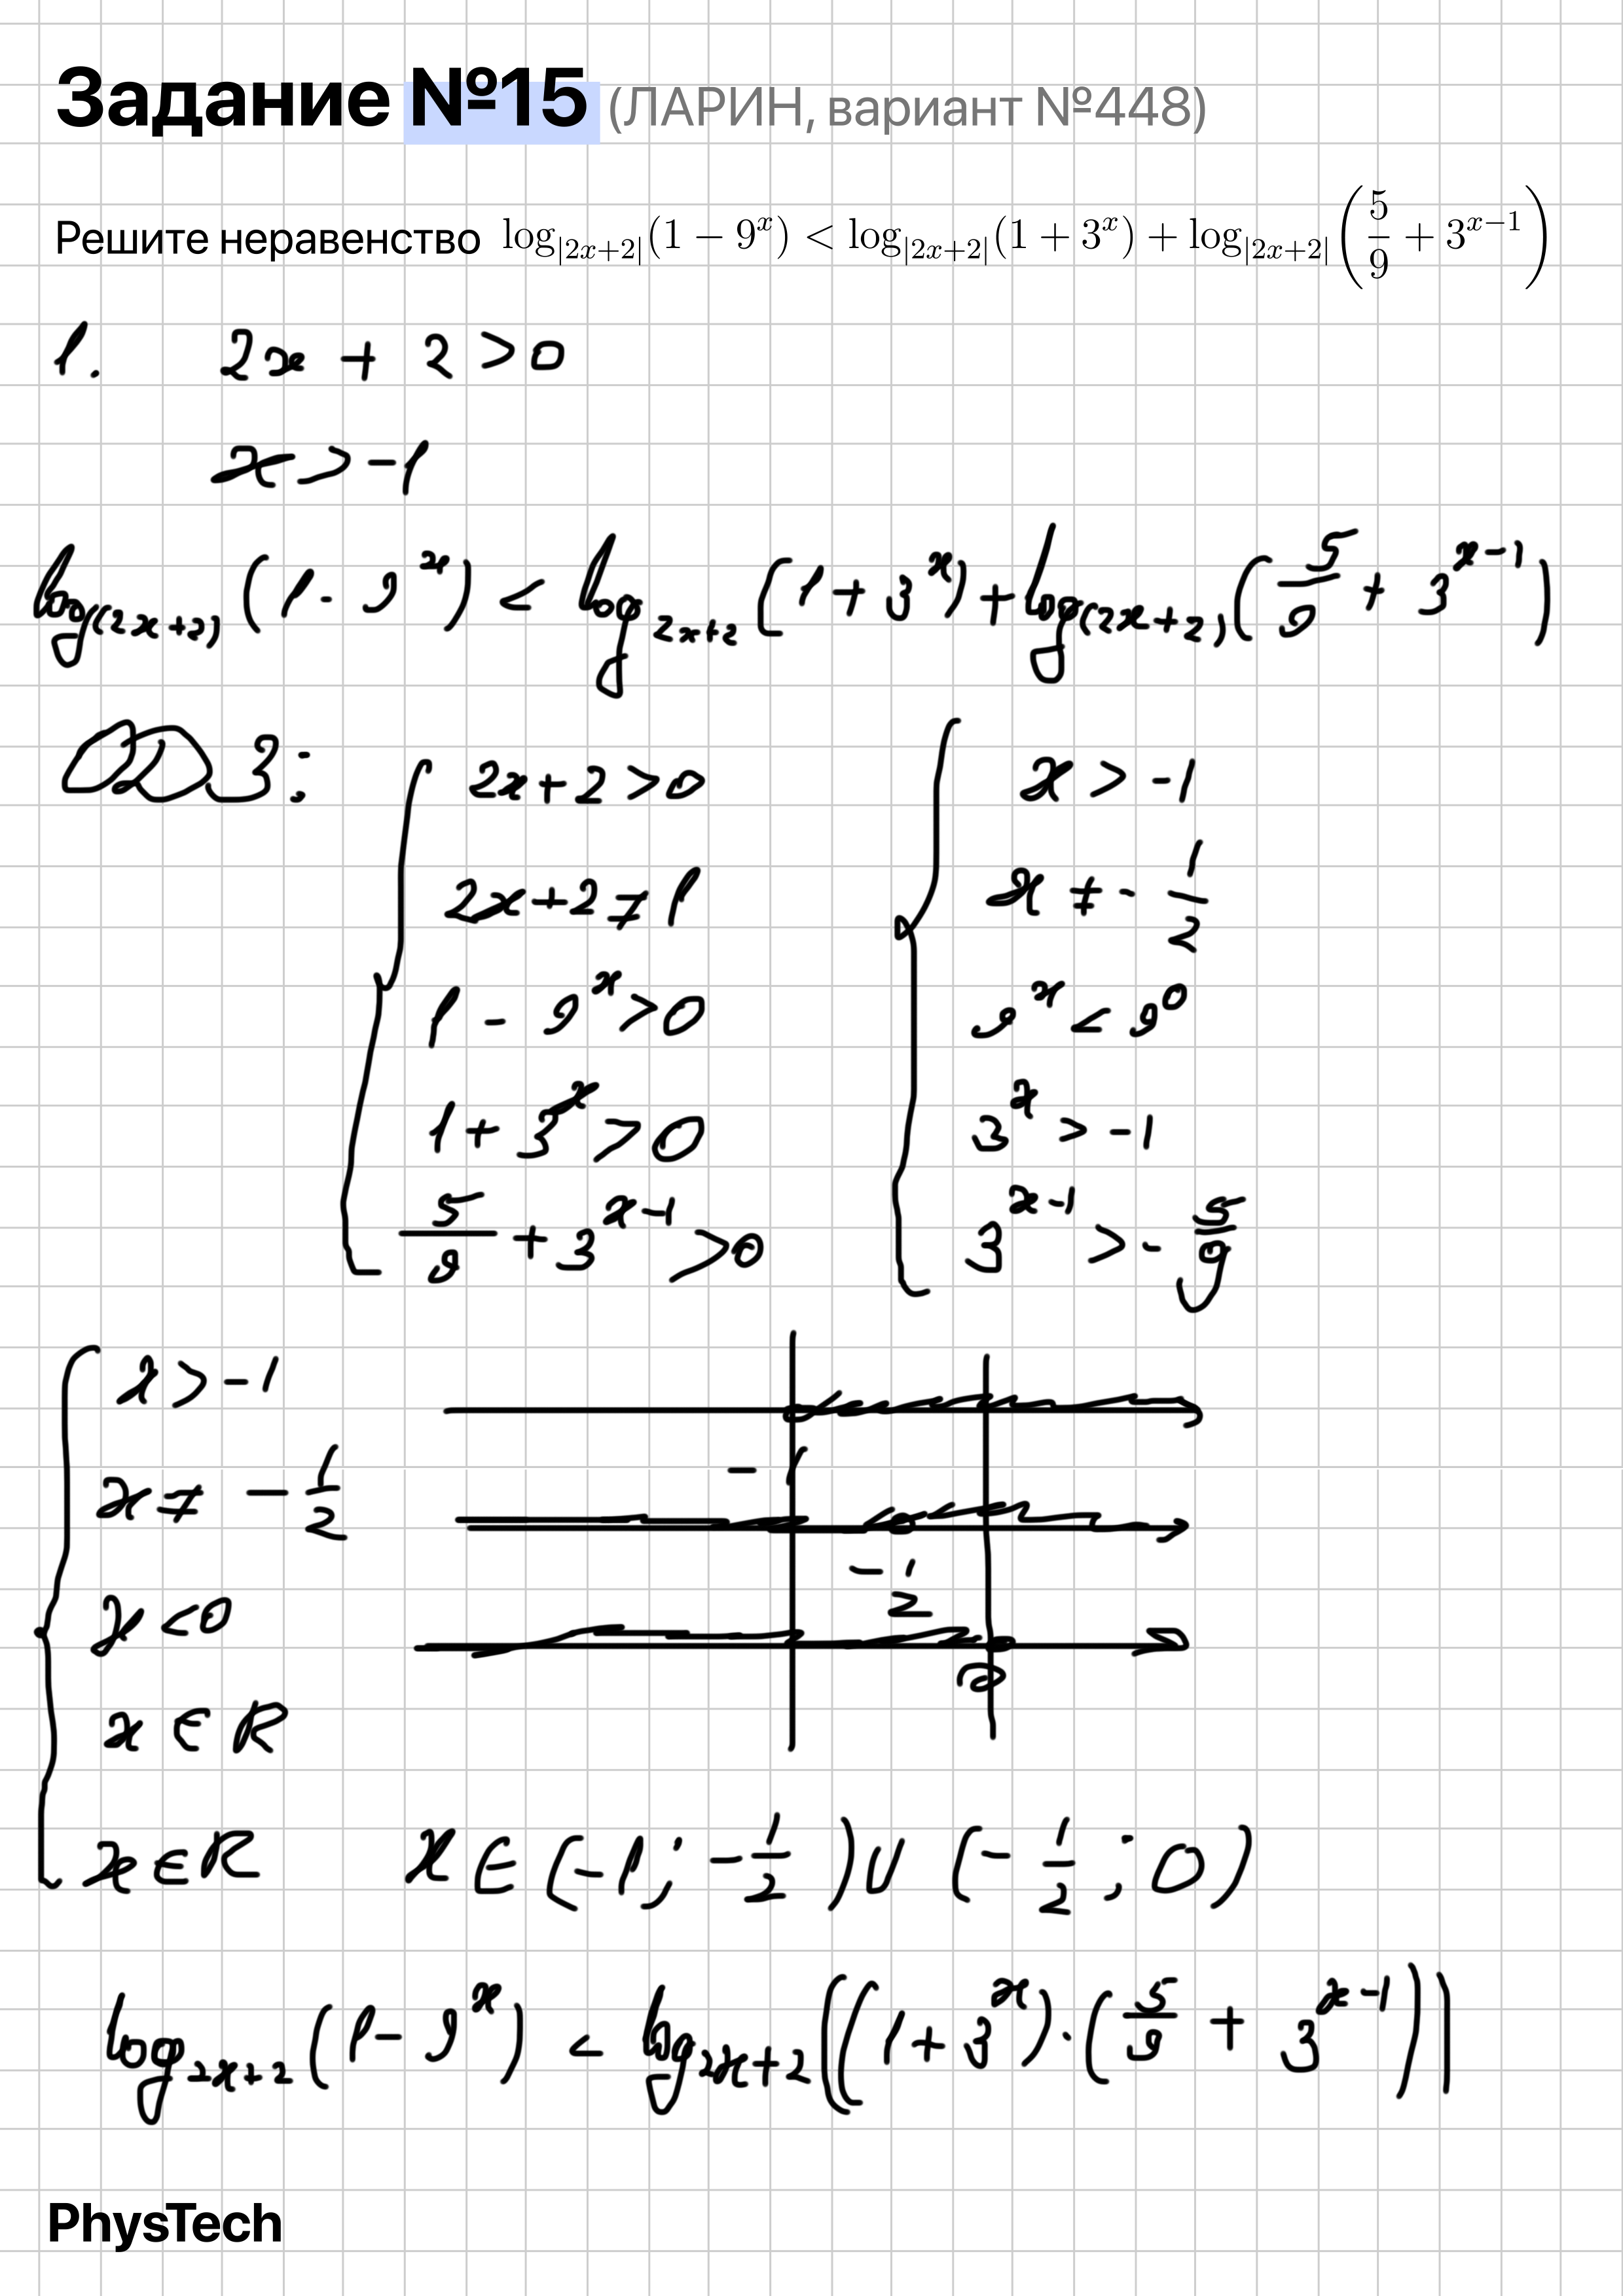 Задание №15 (ЛАРИН, вариант №448)
Решите неравенство log_{|2x+2|}(1 − 9^x) < log_{|2x+2|}(1 + 3^x) + log_{|2x+2|}(5/9 + 3^{x−1})
1. 2x + 2 > 0
x > -1
log_{(2x+2)} (1 - 9^x) < log_{2x+2} (1 + 3^x) + log_{(2x+2)} (5/9 + 3^{x-1})
ОДЗ:
{ 2x+2 > 0 { x > -1
2x+2 ≠ 1 x ≠ -1/2
1 - 9^x > 0 9^x < 9^0
1 + 3^x > 0 3^x > -1
5/9 + 3^{x-1} > 0 3^{x-1} > -5/9
{ x > -1
-1
x ≠ -1/2
-1/2
x < 0
0
x ∈ R
x ∈ R x ∈ (-1; -1/2) ∪ (-1/2; 0)
log_{2x+2} (1 - 9^x) < log_{2x+2} ((1 + 3^x) · (5/9 + 3^{x-1}))
PhysTech